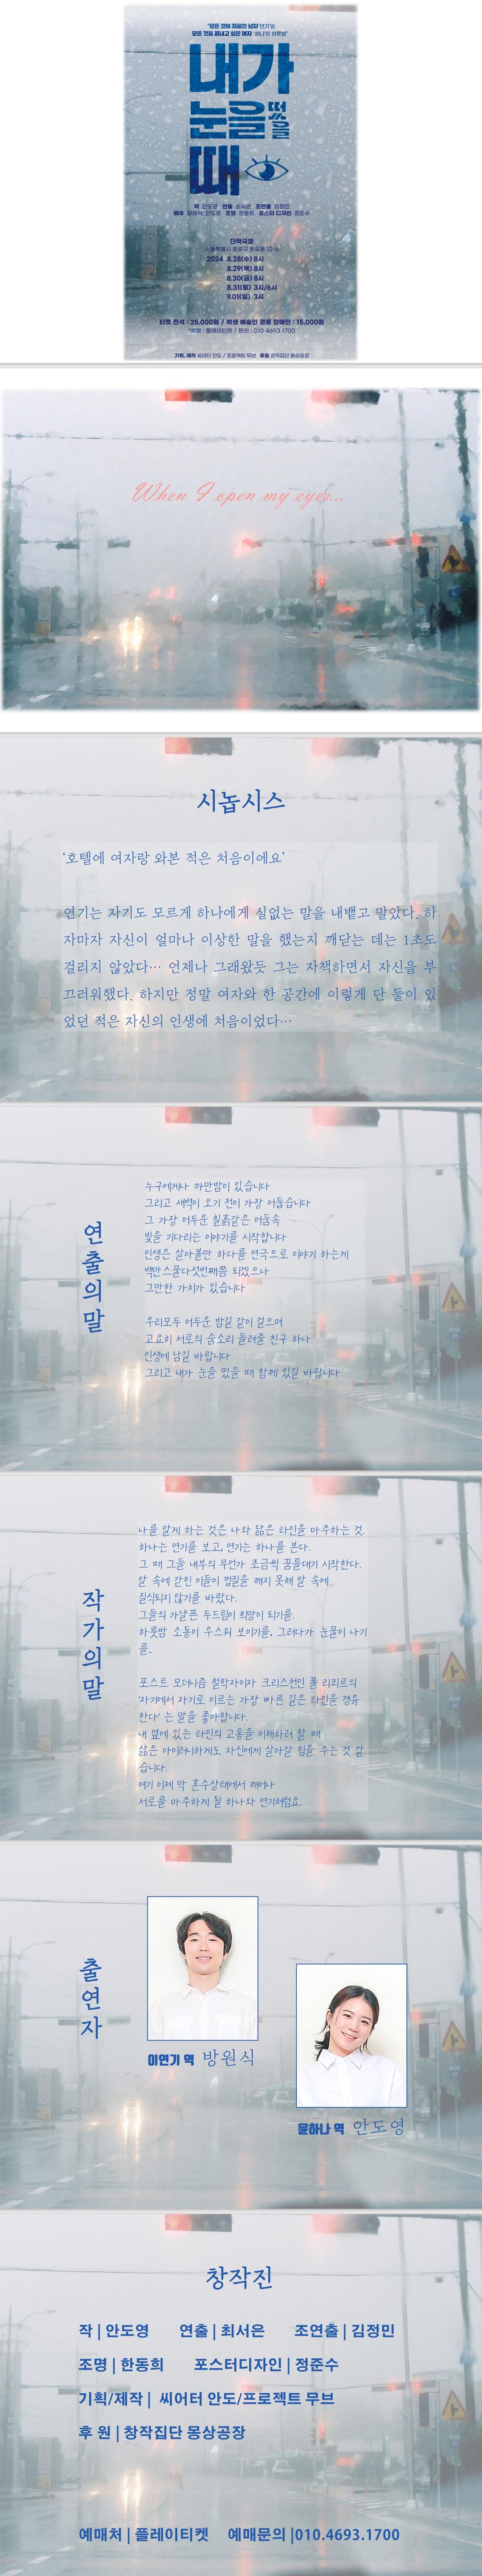 '모든 것이 처음인 남자 연기'와
모든 것을 끝내고 싶은 여자 '하나'의 하룻밤"
내가
눈을 떴을
때
작 안도영 연출 최서은 조연출 김정민
배우 방원식, 안도영 조명 한동희 포스터 디자인 정준수
단막극장
서울특별시 종로구 동숭동 12-6
2024 .8.28(수) 8시
8.29(목) 8시
8.30(금) 8시
8.31(토) 3시/6시
9.01(일) 3시
티켓 전석 : 25,000원 / 학생 예술인 경로 장애인 : 15,000원
*예매 : 플레이티켓 / 문의 : 010 4693 1700
기획, 제작 씨어터 안도 / 프로젝트 무브 후원 창작집단 몽상공장
When I open my eyes...
시놉시스
'호텔에 여자랑 와본 적은 처음이에요'
연기는 자기도 모르게 하나에게 실없는 말을 내뱉고 말았다. 하
자마자 자신이 얼마나 이상한 말을 했는지 깨닫는 데는 1초도
걸리지 않았다… 언제나 그래왔듯 그는 자책하면서 자신을 부
끄러워했다. 하지만 정말 여자와 한 공간에 이렇게 단 둘이 있
었던 적은 자신의 인생에 처음이었다…
연출의말
누구에게나 까만밤이 있습니다
그리고 새벽이 오기 전이 가장 어둡습니다
그 가장 어두운 칠흙같은 어둠속
빛을 기다리는 이야기를 시작합니다
인생은 살아볼만 하다를 연극으로 이야기 하는게
백만스물다섯번째쯤 되겠으나
그만한 가치가 있습니다
우리모두 어두운 밤길 같이 걸으며
고요히 서로의 숨소리 들려줄 친구 하나
인생에 남길 바랍니다
그리고 내가 눈을 떴을 때 함께 있길 바랍니다
작가의말
나를 알게 하는 것은 나와 닮은 타인을 마주하는 것.
하나는 연기를 보고, 연기는 하나를 본다.
그 때 그들 내부의 무언가 조금씩 꿈틀대기 시작한다.
알 속에 갇힌 이들이 껍질을 깨지 못해 알 속에
질식되지 않기를 바랐다.
그들의 가냘픈 두드림이 희망이 되기를.
하룻밤 소동이 우스워 보이기를, 그러다가 눈물이 나기
를..
포스트 모더니즘 철학자이자 크리스천인 폴 리쾨르의
'자기에서 자기로 이르는 가장 빠른 길은 타인을 경유
한다' 는 말을 좋아합니다.
내 옆에 있는 타인의 고통을 이해하려 할 때
삶은 아이러니하게도 자신에게 살아갈 힘을 주는 것 같
습니다.
여기 이제 막 혼수상태에서 깨어나
서로를 마주하게 될 하나와 연기처럼요.
출연자
이연기 역 방원식
윤하나 역 안도영
창작진
작 | 안도영 연출 | 최서은 조연출 | 김정민
조명 | 한동희 포스터디자인 | 정준수
기획/제작 | 씨어터 안도/프로젝트 무브
후 원 | 창작집단 몽상공장
예매처 | 플레이티켓 예매문의 |010.4693.1700